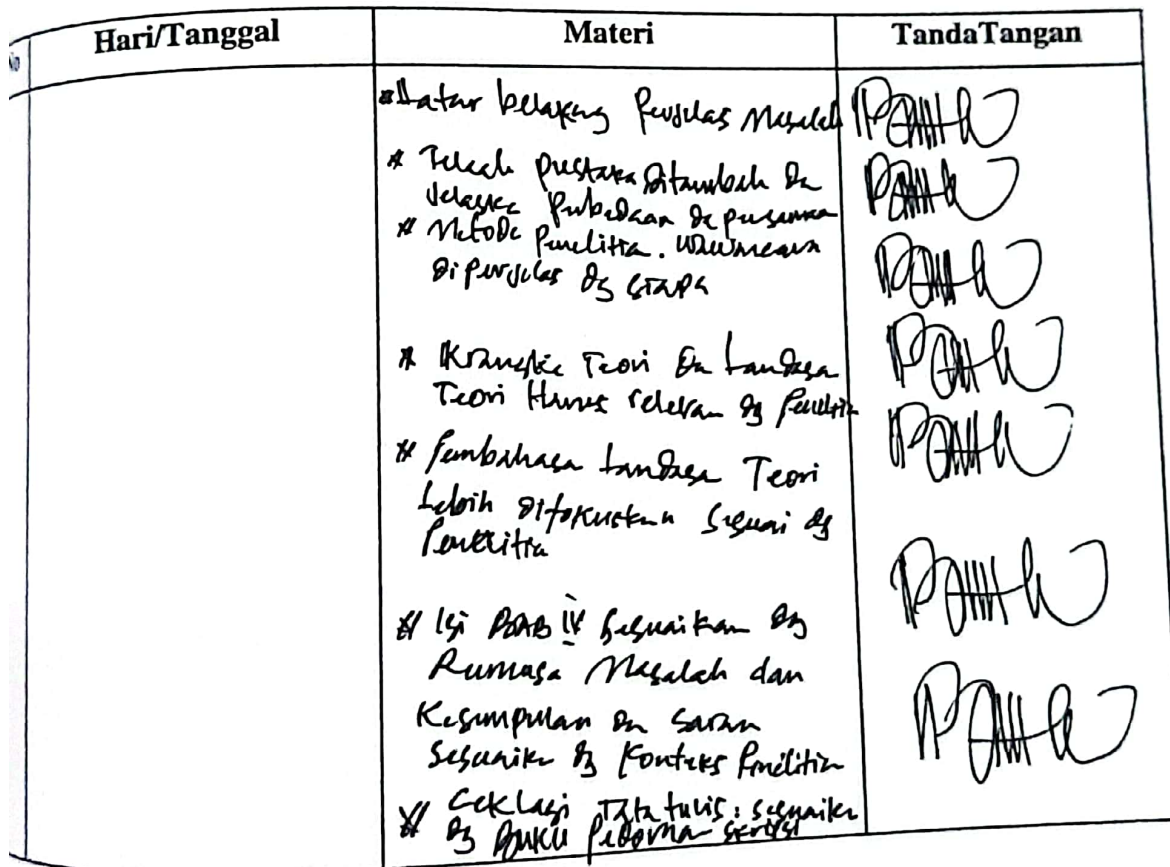 No
Hari/Tanggal
Materi
TandaTangan
* Latar belakang Perjelas Masalah
* Telaah pustaka Ditambah Dn
Jelaske Perbedaan Dn persamaa
* Metode Penelitia. wawancara
Diperjelas Dg siapa
* Krangke Teori Dn Landasa
Teori Harus relevan Dg Penelitia
* Pembahasa Landasa Teori
Lebih Difokuskan Sesuai dg
Penelitia
* Isi BAB IV Sesuaikan Dg
Rumusa Masalah dan
Kesimpulan Dn Saran
Sesuaike Dg Konteks Penelitia
* Cek Lagi Tata tulis: sesuaike
Dg Buku Pedoman skripsi